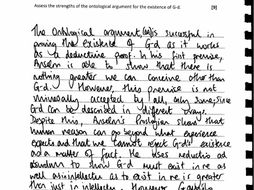 Assess the strengths of the ontological argument for the existence of G-d. [9]
The ontological argument is successful in
proving the existence of G-d as it works
as a deductive proof. In his first premise,
Anselm is able to show that there is
nothing greater we can conceive other than
G-d. However, this premise is not
universally accepted by all, only some, since
G-d can be described in different ways.
Despite this, Anselm's Proslogion shows that
human reason can go beyond what experience
expects and that we cannot reject G-d's existence
as a matter of fact. He uses reductio ad
absurdum to show G-d must exist in re as
well as in intellectu as to exist in re is greater
than just in intellectu. However Gaunilo